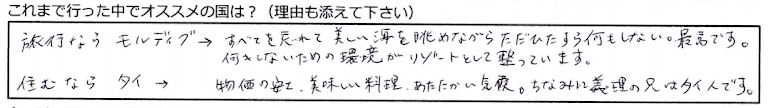 これまで行った中でオススメの国は？（理由も添えて下さい）
旅行なら モルディブ → すべてを忘れて美しい海を眺めながらただひたすら何もしない。最高です。
何もしないための環境がリゾートとして整っています。
住むなら タイ → 物価の安さ、美味しい料理、あたたかい気候。ちなみに義理の兄はタイ人です。